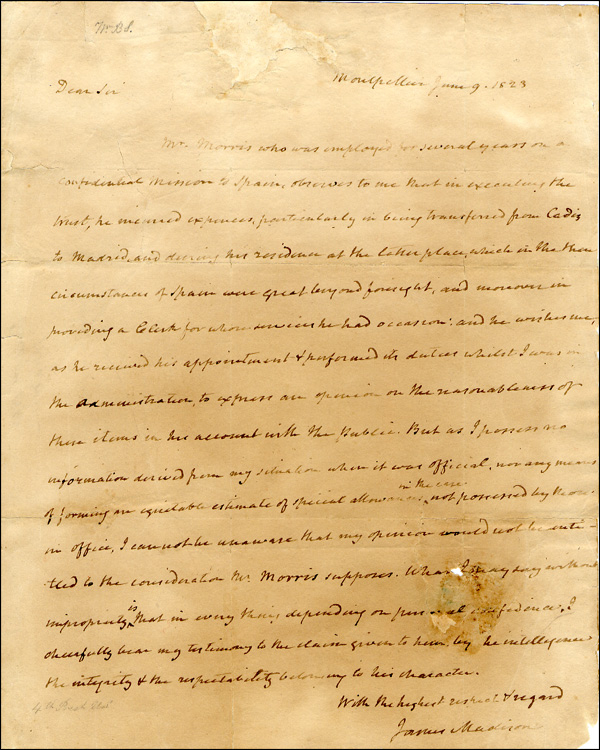 Dear Sir
Montpellier June 9. 1823
Mr. Morris who was employed for several years on a
confidential Mission to Spain, observes to me that in executing the
trust, he incurred expences, particularly in being transferred from Cadiz
to Madrid, and during his residence at the latter place, which in the then
circumstances of Spain were great beyond foresight, and moreover in
providing a Clerk for whose services he had occasion: and he wishes me,
as he received his appointment & performed its duties whilst I was in
the administration, to express an opinion on the reasonableness of
these items in his account with the Public. But as I possess no
information derived from my situation when it was official, nor any means
of forming an equitable estimate of special allowances in the case not possessed by those
in office, I can not be unaware that my opinion would not be enti-
tled to the consideration Mr. Morris supposes. What I may say without
impropriety is that in every thing depending on personal confidence, I
chearfully bear my testimony to the claim given to him by the intelligence
the integrity & the respectability belonging to his character.
With the highest respect & regard
James Madison